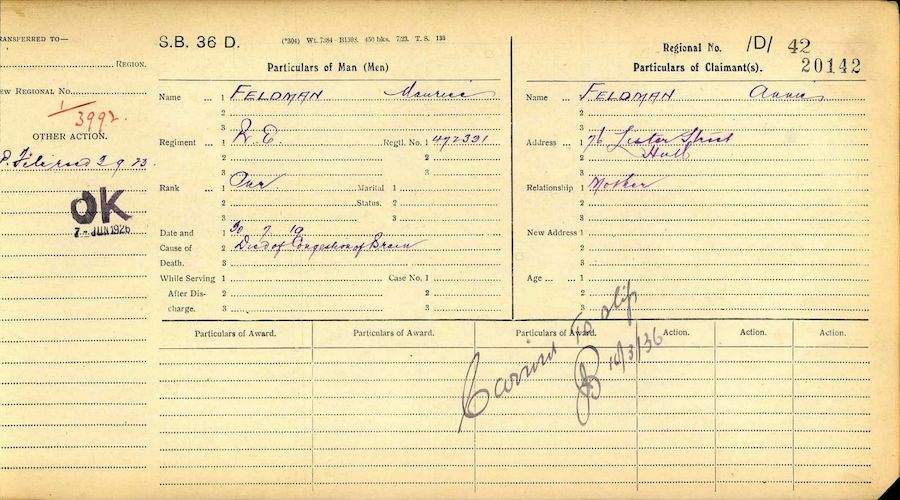 TRANSFERRED TO—
REGION.
NEW REGIONAL No.
1/3992.
OTHER ACTION.
2 9 23
OK
7 - JUN 1926
S.B. 36 D. (*304) Wt. 7384 - B1303. 450 bks. 7/23. T. S. 138
Particulars of Man (Men)
Name ... 1 FELDMAN Maurice
2
3
Regiment ... 1 R.E Regtl. No. 1 472331
2 2
3 3
Rank ... 1 Marital 1
2 Status. 2
3 3
Date and 1 30 7 19
Cause of 2 Died of Congestion of Brain
Death. 3
While Serving 1 Case No. 1
After Dis- 2 2
charge. 3 3
Regional No. /D/ 42
20142
Particulars of Claimant(s).
Name ... 1 FELDMAN Annie
2
3
Address ... 1 76 Lister Street
2 Hull
3
Relationship 1 Mother
2
3
New Address 1
2
3
Age ... ... 1
2
3
Particulars of Award. Particulars of Award. Particulars of Award. Action. Action. Action.
Carried to slip
16/3/36